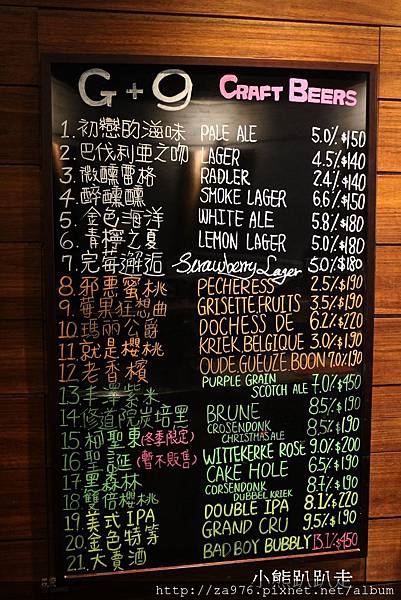 G+9 CRAFT BEERS
1. 初戀的滋味 PALE ALE 5.0% $150
2. 巴伐利亞之吻 LAGER 4.5% $140
3. 微醺雷格 RADLER 2.4% $140
4. 醉醺醺 SMOKE LAGER 6.6% $150
5. 金色海洋 WHITE ALE 5.8% $180
6. 青檸之夏 LEMON LAGER 5.0% $180
7. 完莓邂逅 Strawberry Lager 5.0% $180
8. 邪惡蜜桃 PECHERESS 2.5% $190
9. 莓果狂想曲 GRISETTE FRUITS 3.5% $190
10. 瑪麗公爵 DOCHESS DE 6.2% $220
11. 就是櫻桃 KRIEK BELGIQUE 3.0% $190
12. 老香檳 OUDE GUEUZE BOON 7.0% $190
13. 紫米 PURPLE GRAIN SCOTCH ALE 7.0% $450
14. 修道院 BRUNE 8.5% $190
15. 柯聖東 (冬季限定) CORSENDONK CHRISTMAS ALE 8.5% $190
16. 聖誕 (暫不販售) WITTEKERKE ROSE 9.0% $200
17. 黑森林 CAKE HOLE 6.5% $190
18. 雙倍櫻桃 CORSENDONK DUBBEL KRIEK 8.7% $190
19. 美式IPA DOUBLE IPA 8.1% $220
20. 金色特等 GRAND CRU 9.5% $190
21. 大賣酒 BAD BOY BUBBLY 13.1% $450
小熊趴趴走
http://za976.pixnet.net/album